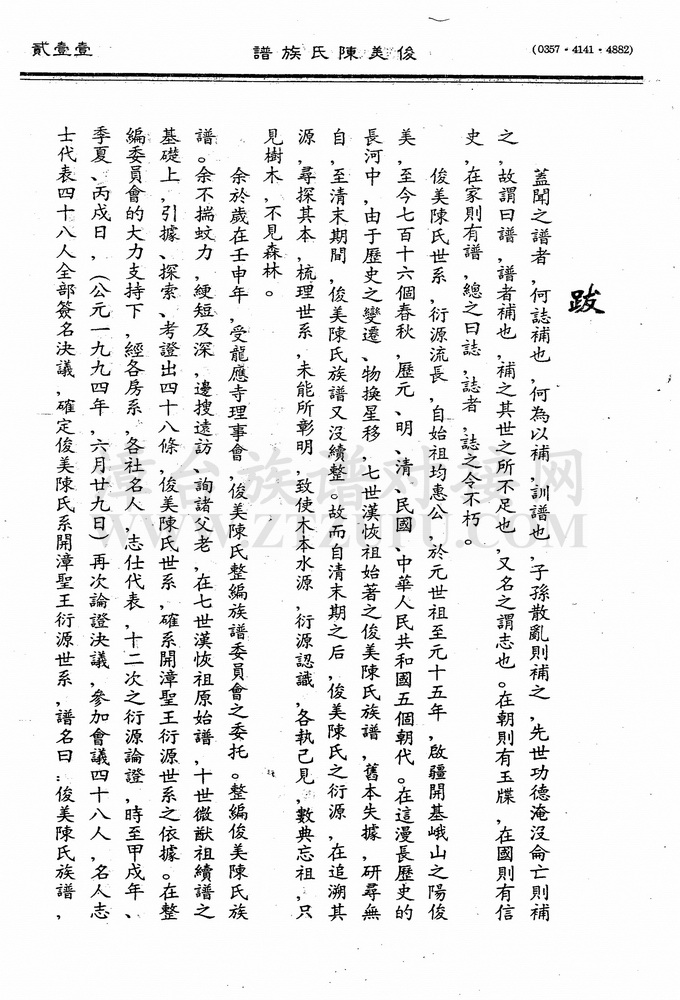 貳壹壹
俊美陳氏族譜
(0357・4141・4882)
跋
蓋聞之譜者,何誌補也,何為以補,訓譜也,子孫散亂則補之,先世功德淹沒侖亡則補
之,故謂曰譜,譜者補也,補之其世之所不足也,又名之謂志也。在朝則有玉牒,在國則有信
史,在家則有譜,總之曰誌,誌者,誌之令不朽。
俊美陳氏世系,衍源流長,自始祖均惠公,於元世祖至元十五年,啟疆開基峨山之陽俊
美,至今七百十六個春秋,歷元、明、清、民國、中華人民共和國五個朝代。在這漫長歷史的
長河中,由于歷史之變遷、物換星移,七世漢恢祖始著之俊美陳氏族譜,舊本失據,研尋無
自,至清末期間,俊美陳氏族譜又沒續整。故而自清末期之后,俊美陳氏之衍源,在追溯其
源,尋探其本,梳理世系,未能所彰明,致使木本水源,衍源認識,各執己見,數典忘祖,只
見樹木,不見森林。
余於歲在壬申年,受龍應寺理事會,俊美陳氏整編族譜委員會之委托。整編俊美陳氏族
譜。余不揣蚊力,綆短及深,邊搜遠訪、詢諸父老,在七世漢恢祖原始譜,十世微猷祖續譜之
基礎上,引據、探索、考證出四十八條,俊美陳氏世系,確系開漳聖王衍源世系之依據。在整
編委員會的大力支持下,經各房系,各社名人,志仕代表,十二次之衍源論證,時至甲戌年、
季夏、丙戌日,(公元一九九四年,六月廿九日)再次論證決議,參加會議四十八人,名人志
士代表四十八人全部簽名決議,確定俊美陳氏系開漳聖王衍源世系,譜名曰:俊美陳氏族譜,
漳台族譜對接網
WWW.ZTZUPU.COM